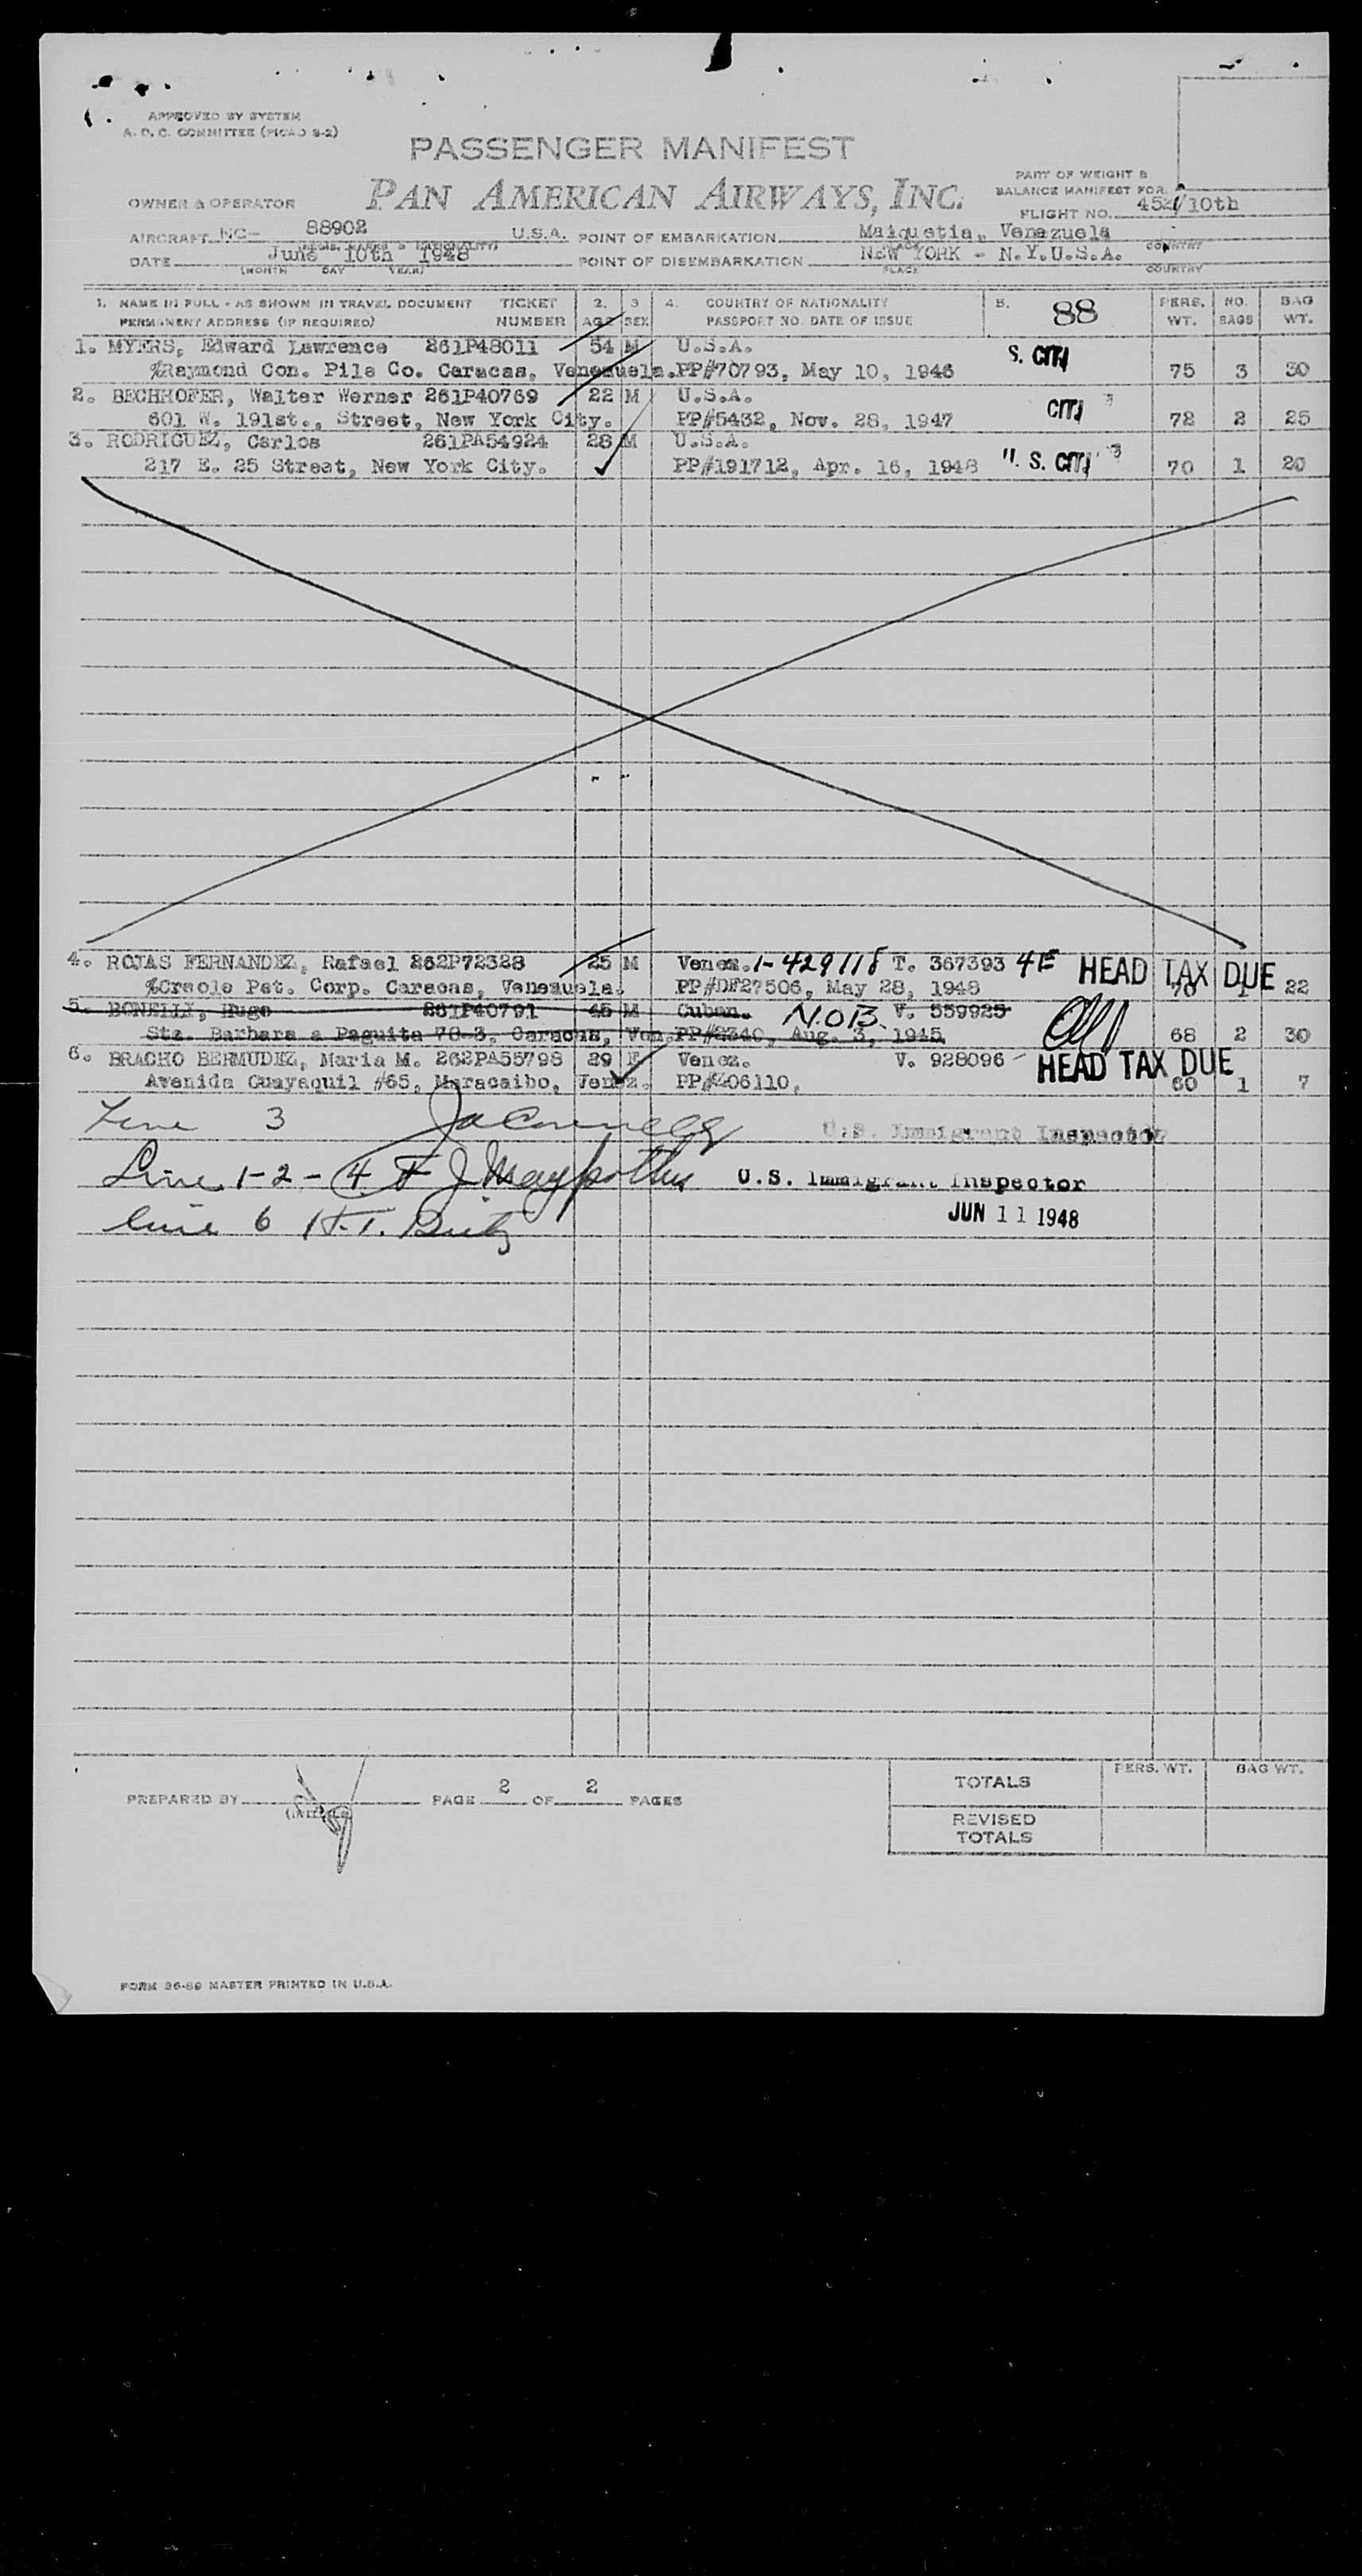 APPROVED BY SYSTEM
A. O. C. COMMITTEE (PICAO 9-2)
PASSENGER MANIFEST
PAN AMERICAN AIRWAYS, INC.
PART OF WEIGHT &
BALANCE MANIFEST FOR
OWNER & OPERATOR
FLIGHT NO. 10th
AIRCRAFT NC- 88902 U.S.A. POINT OF EMBARKATION Maiquetia, Venezuela
DATE June 10th 1948 POINT OF DISEMBARKATION NEW YORK - N.Y.U.S.A.
(MONTH DAY YEAR) PLACE COUNTRY
1. NAME IN FULL - AS SHOWN IN TRAVEL DOCUMENT TICKET 2. 3 4. COUNTRY OF NATIONALITY 5. 88 PERS. NO. BAG
PERMANENT ADDRESS (IF REQUIRED) NUMBER AGE SEX PASSPORT NO. DATE OF ISSUE WT. BAGS WT.
1. MYERS, Edward Lawrence 261P48011 54 M U.S.A. S. CITI
%Raymond Con. Pile Co. Caracas, Venezuela. PP#70793, May 10, 1946 75 3 30
2. BECHHOFER, Walter Werner 261P40769 22 M U.S.A. CITI
601 W. 191st., Street, New York City. PP#5432, Nov. 28, 1947 78 2 25
3. RODRIGUEZ, Carlos 261PA54924 28 M U.S.A.
217 E. 25 Street, New York City. PP#191712, Apr. 16, 1948 S. CITI 70 1 20
4. ROJAS FERNANDEZ, Rafael 262P72328 25 M Venez. 1-429118 T. 367393 4E HEAD TAX DUE
%Creole Pet. Corp. Caracas, Venezuela. PP#DF27506, May 28, 1948 70 1 22
5. BONELLI, Hugo 261P40791 45 M Cuban. N.O.B. V. 559925
Sta. Barbara a Paguita 70-3, Caracas, Ven. PP#2340, Aug. 3, 1945, 68 2 30
6. BRACHO BERMUDEZ, Maria M. 262PA55798 29 F Venez. V. 928096 HEAD TAX DUE
Avenida Guayaquil #65, Maracaibo, Venez. PP#206110, 60 1 7
Line 3 U.S. Immigrant Inspector
Line 1-2-4 U.S. Immigrant Inspector
JUN 11 1948
Line 6 H.T.
TOTALS PERS. WT. BAG WT.
PREPARED BY PAGE 2 OF 2 PAGES
REVISED
TOTALS
FORM 36-89 MASTER PRINTED IN U.S.A.